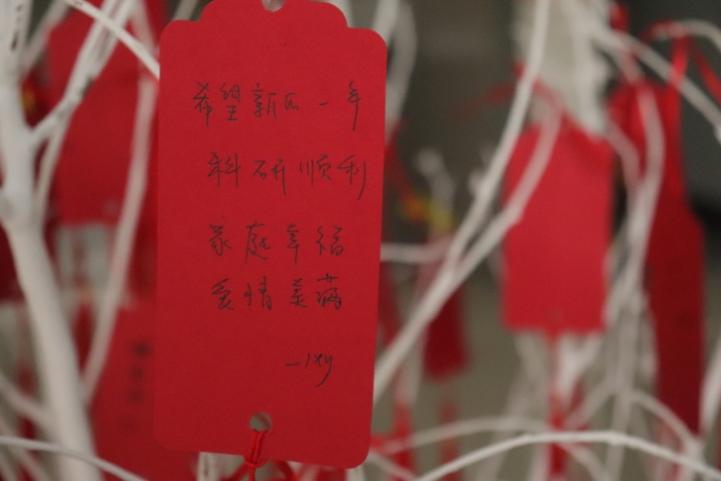 希望新的一年
科研顺利
家庭幸福
爱情美满
—lxy